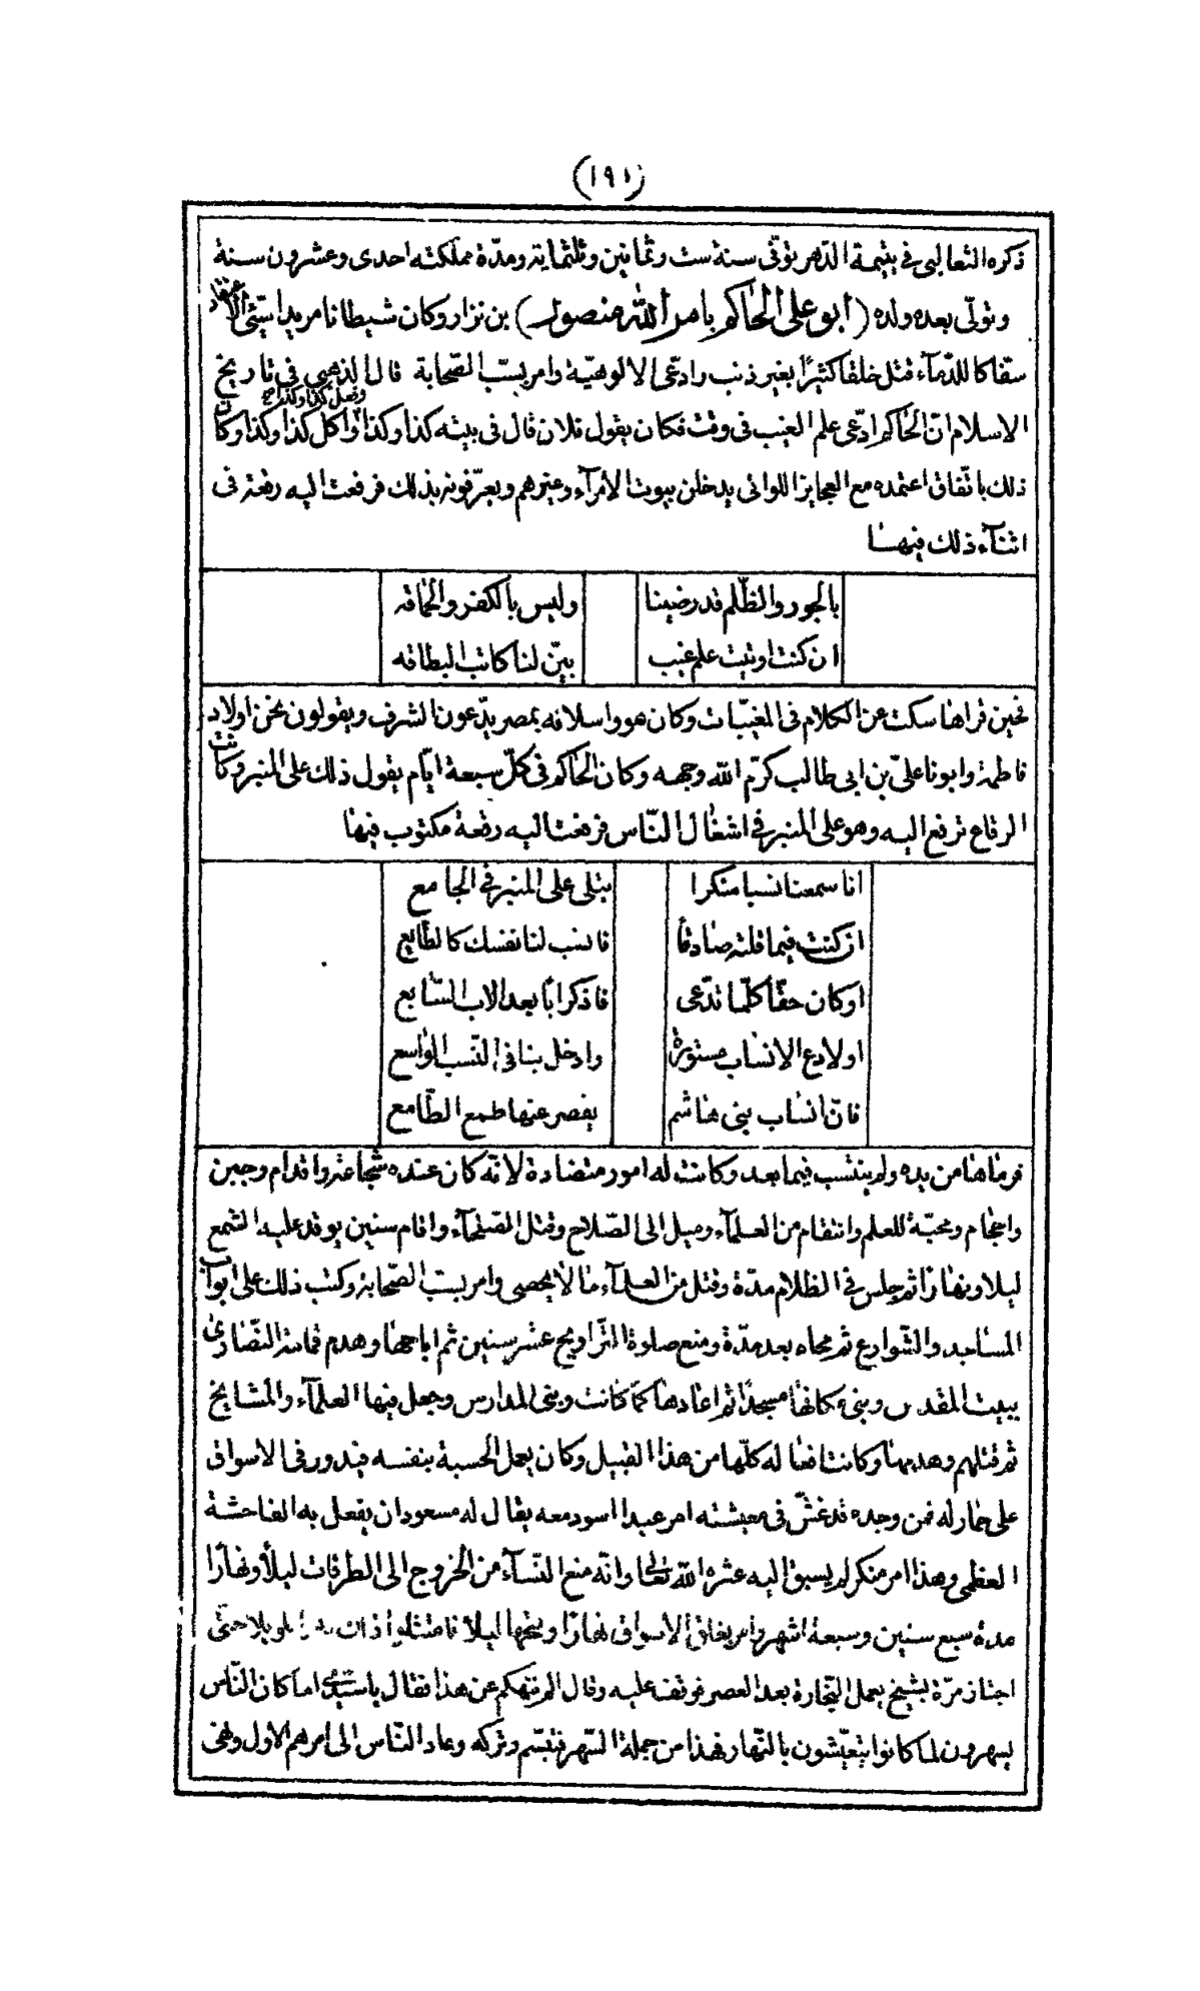 (١٩١)
ذكره الثعالبى فى يتيمة الدهر توفّى سنة ست وثمانين وثلثماية ومدّة مملكته احدى وعشرون سنة
وتولّى بعده ولده (ابو على الحاكم بامر الله منصور) بن نزار وكان شيطانا مريدا سيّئ الاعتقاد
سفاكا للدّمآء قتل خلقا كثيرًا بغير ذنب وادّعى الالوهيّة وامر بسبّ الصّحابة قال الذهبى فى تاريخ
الاسلام انّ الحاكم ادّعى علم الغيب فى وقت فكان يقول فلان قال فى بيته كذا وكذا وفعل كذا وكذا واكل كذا وكذا وكان
ذلك باتّفاق اعتمده مع العجايز اللواتى يدخلن بيوت الامرآء وغيرهم ويعرّفونه بذلك فرفعت اليه رقعة فى
اثنآء ذلك فيها
بالجور والظّلم قد رضينا وليس بالكفر والحماقه
ان كنت اوتيت علم غيب بيّن لنا كاتب البطاقه
فحين قراها سكت عن الكلام فى المغيّبات وكان هو واسلافه بمصر يدّعون الشرف ويقولون نحن اولاد
فاطمة وابونا علىّ بن ابى طالب كرّم الله وجهه وكان الحاكم فى كلّ سبعة ايّام يقول ذلك على المنبر وكانت
الرقاع ترفع اليه وهو على المنبر فى اشغال النّاس فرفعت اليه رقعة مكتوب فيها
انا سمعنا نسبا منكرا يتلى على المنبر فى الجامع
ان كنت فيما قلته صادقا فانسب لنا نفسك كالطايع
اوكان حقّا كلّما تدّعى فاذكر ابًا بعد الاب السّابع
اولادع الانساب مستورة وادخل بنا فى النّسب الواسع
فانّ انساب بنى هاشم يقصر عنها طمع الطّامع
فرماها من يده ولم ينتسب فيما بعد وكانت له امور متضادة لانّه كان عنده شجاعة واقدام وجبن
واحجام ومحبّة للعلم وانتقام من العلمآء وميل الى الصّلاح وقتل الصلحآء واقام سنين يوقد عليه الشمع
ليلا ونهارًا ثم جلس فى الظلام مدّة وقتل من العلمآء ما لا يحصى وامر بسبّ الصّحابة وكتب ذلك على ابواب
المساجد والشّوارع ثم محاه بعد مدّة ومنع صلوة التّراويح عشر سنين ثم اباحها وهدم قمامة النّصارى
ببيت المقدس وبنى مكانها مسجدًا ثم اعادها كما كانت وبنى المدارس وجعل فيها العلمآء والمشايخ
ثم قتلهم وهدمها وكانت افعاله كلّها من هذا القبيل وكان يعمل الحسبة بنفسه فيدور فى الاسواق
على حمار له فمن وجده قد غشّ فى معيشته امر عبدا اسود معه يقال له مسعود ان يفعل به الفاحشة
العظمى وهذا امر منكر لم يسبق اليه عثره الله تعالى وانّه منع النّسآء من الخروج الى الطرقات ليلًا ونهارًا
مدة سبع سنين وسبعة اشهر وامر بغلق الاسواق نهارًا وفتحها ليلا فامتثلوا ذلك طويلا حتّى
اجتاز مرّة بشيخ يعمل النّجارة بعد العصر فوقف عليه وقال الم ننهكم عن هذا فقال يا سيّدى اما كان النّاس
يسهرون لما كانوا يتعيّشون بالنّهار فهذا من جملة السّهر فتبسّم وتركه وعاد النّاس الى امرهم الاول وفى